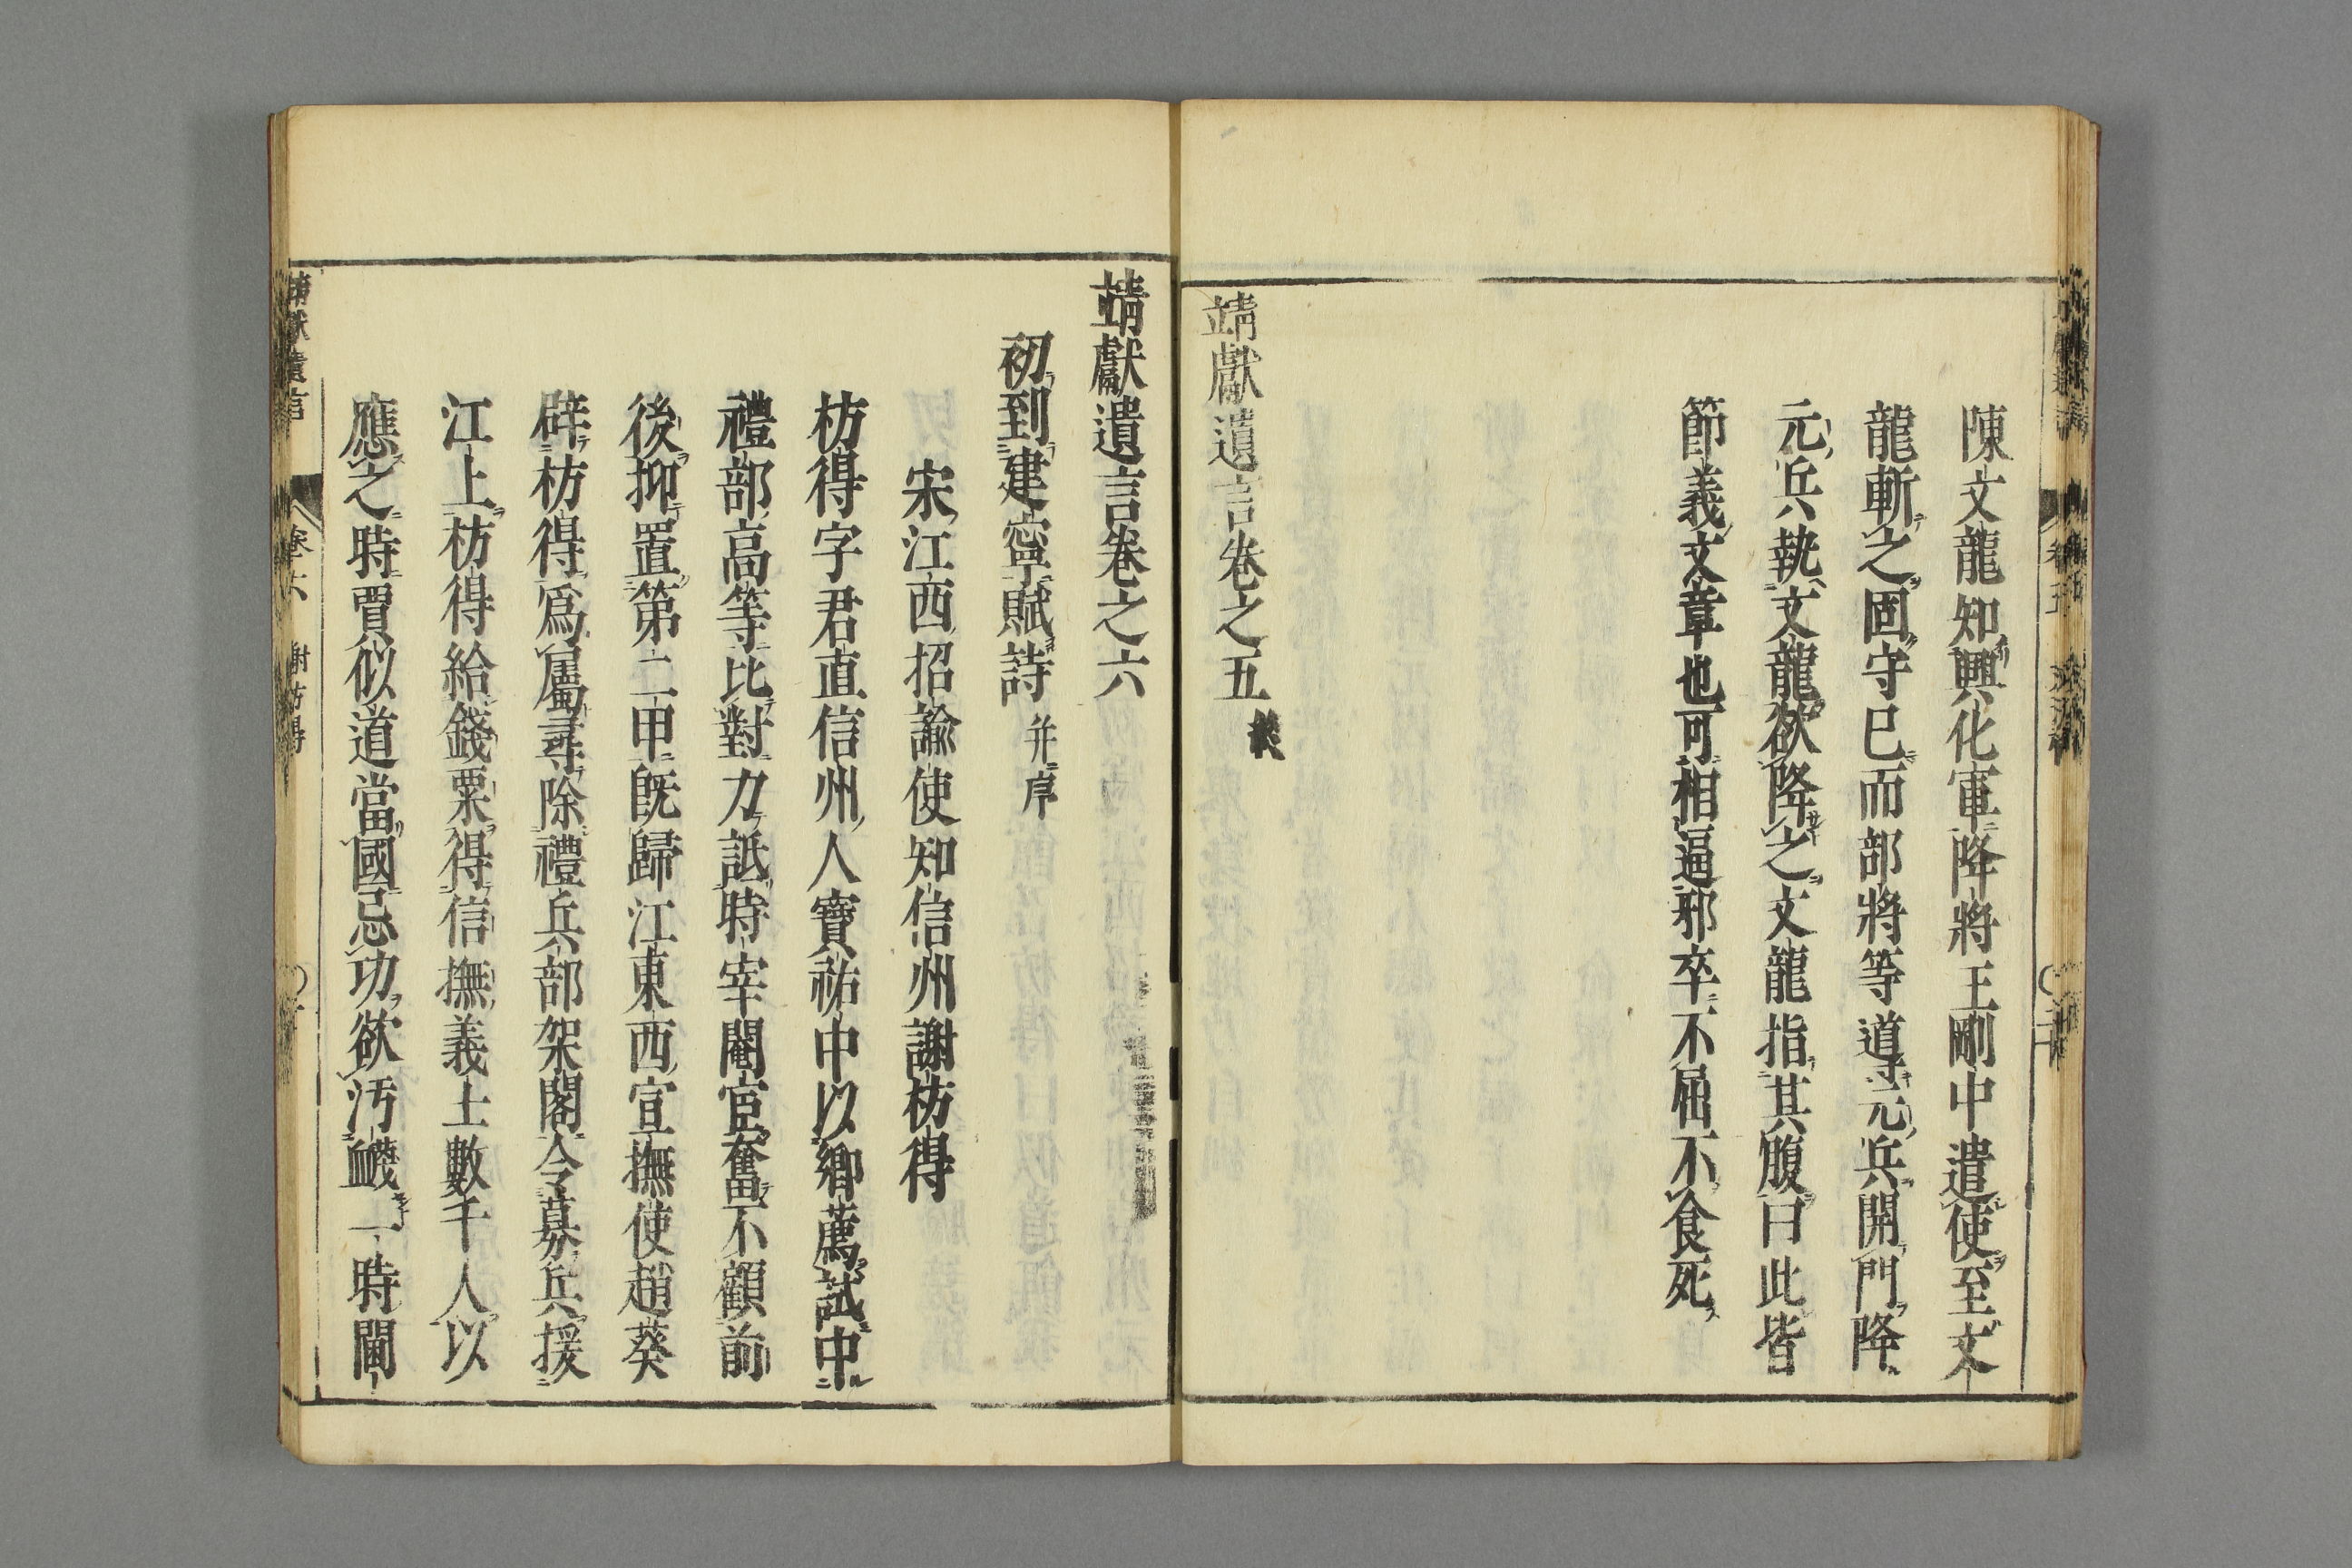 陳文龍知興化軍降將王剛中遣使至文
龍斬之固守已而部將等導元兵開門降
元兵執文龍欲降之文龍指其腹曰此皆
節義文章也可相逼邪卒不屈不食死
靖獻遺言卷之五 終
靖獻遺言卷之六
初到建寧賦詩 并序
宋江西招諭使知信州謝枋得
枋得字君直信州人寶祐中以鄉薦試中
禮部高等比對力詆時宰閹宦奮不顧前
後抑置第二甲既歸江東西宣撫使趙葵
辟枋得爲屬尋除禮兵部架閣令募兵援
江上枋得給錢粟得信撫義士數千人以
應之時賈似道當國忌功欲汚衊一時閫
靖獻遺言 卷六 謝枋得